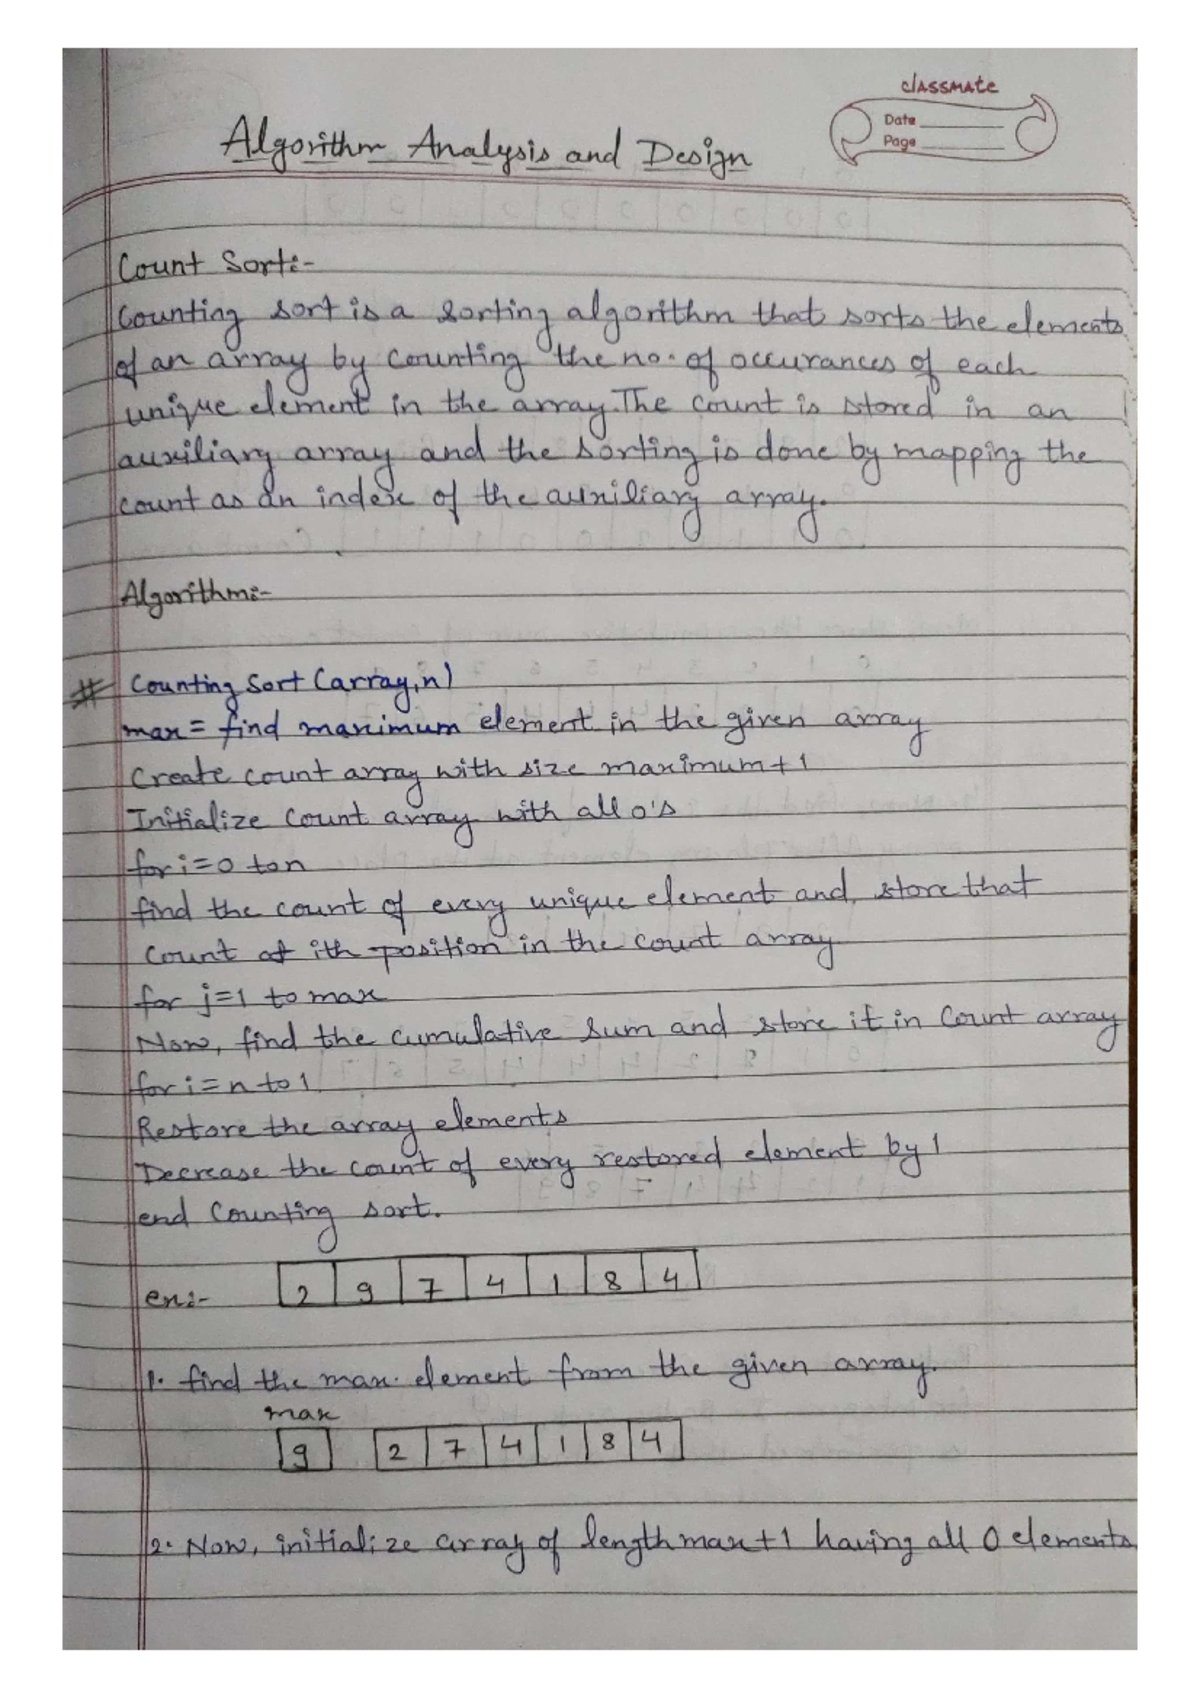 classmate
Date
Page
Algorithm Analysis and Design
Count Sort:-
Counting sort is a sorting algorithm that sorts the elements
of an array by counting the no. of occurances of each
unique element in the array. The count is stored in an
auxiliary array and the sorting is done by mapping the
count as an index of the auxiliary array.
Algorithm:-
# Counting Sort (array, n)
max = find maximum element in the given array
Create count array with size maximum + 1
Initialize count array with all 0's
for i = 0 to n
find the count of every unique element and store that
count at ith position in the count array
for j = 1 to max
Now, find the cumulative sum and store it in count array
for i = n to 1
Restore the array elements
Decrease the count of every restored element by 1
end counting sort.
ex:- 2 9 7 4 1 8 4
1. find the max. element from the given array.
max
9 2 7 4 1 8 4
2. Now, initialize array of length max + 1 having all 0 elements